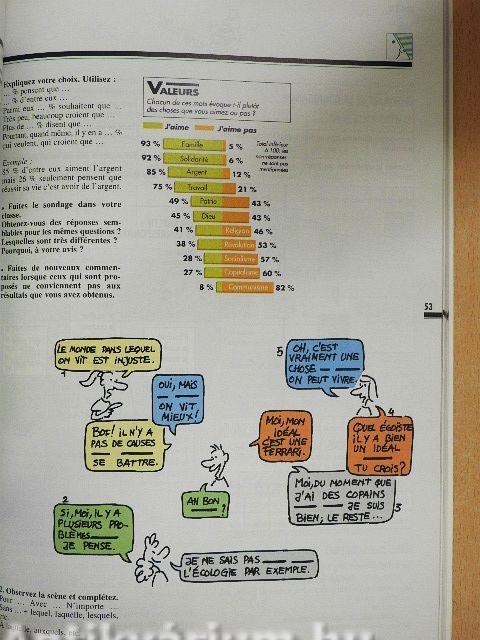 Expliquez votre choix. Utilisez :
... % pensent que ...
... % d'entre eux ...
Parmi eux ... % souhaitent que ...
Très peu, beaucoup croient que ...
Plus de ... % disent que ...
Pourtant, quand même, il y en a ... %
qui veulent, qui croient que ...
Exemple :
85 % d'entre eux aiment l'argent
mais 26 % seulement pensent que
réussir sa vie c'est avoir de l'argent.
. Faites le sondage dans votre
classe.
Obtenez-vous des réponses sem-
blables pour les mêmes questions ?
Lesquelles sont très différentes ?
Pourquoi, à votre avis ?
. Faites de nouveaux commen-
taires lorsque ceux qui sont pro-
posés ne conviennent pas aux
résultats que vous avez obtenus.
VALEURS
Chacun de ces mots évoque t-il plutôt
des choses que vous aimez ou pas ?
J'aime J'aime pas
Total inférieur
à 100: les
non-réponses
ne sont pas
mentionnées
93 % Famille 5 %
92 % Solidarité 6 %
85 % Argent 12 %
75 % Travail 21 %
49 % Patrie 43 %
45 % Dieu 43 %
41 % Religion 46 %
38 % Révolution 53 %
28 % Socialisme 57 %
27 % Capitalisme 60 %
8 % Communisme 82 %
53
LE MONDE DANS LEQUEL
ON VIT EST INJUSTE.
1
OUI, MAIS
__ __
ON VIT
MIEUX!
BOF! IL N'Y A
PAS DE CAUSES
__ __
SE BATTRE.
5
OH, C'EST
VRAIMENT UNE
CHOSE __ __
ON PEUT VIVRE.
4
QUEL ÉGOÏSTE
IL Y A BIEN
UN IDÉAL
__
TU CROIS?
MOI, MON
IDÉAL
C'EST UNE
FERRARI.
MOI, DU MOMENT QUE
J'AI DES COPAINS
__ __ JE SUIS
BIEN; LE RESTE...
3
AH BON
__ ?
2
SI, MOI, IL Y A
PLUSIEURS PRO-
BLÈMES __
JE PENSE.
JE NE SAIS PAS __ __
L'ÉCOLOGIE PAR EXEMPLE.
2. Observez la scène et complétez.
Pour ... Avec ... N'importe ...
Sans ... + lequel, laquelle, lesquels,
etc.
auxquels, etc.